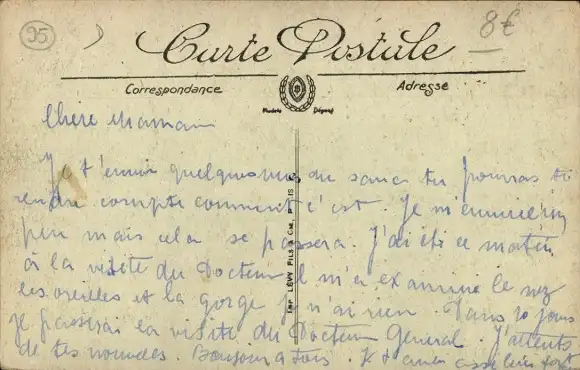 95
8€
Carte Postale
Correspondance
Adresse
Modèle Déposé
Chère Maman
Je t'envoie quelques vues du sana tu pourras te
rendre compte comment c'est. Je m'ennuie un
peu mais cela se passera. J'ai été ce matin
à la visite du Docteur il m'a examiné le nez
les oreilles et la gorge je n'ai rien. Dans 10 jours
je passerai la visite du Docteur Général. J'attends
de tes nouvelles. Bonjour à tous. Je t'
IMP. LÉVY FILS & CIE, PARIS